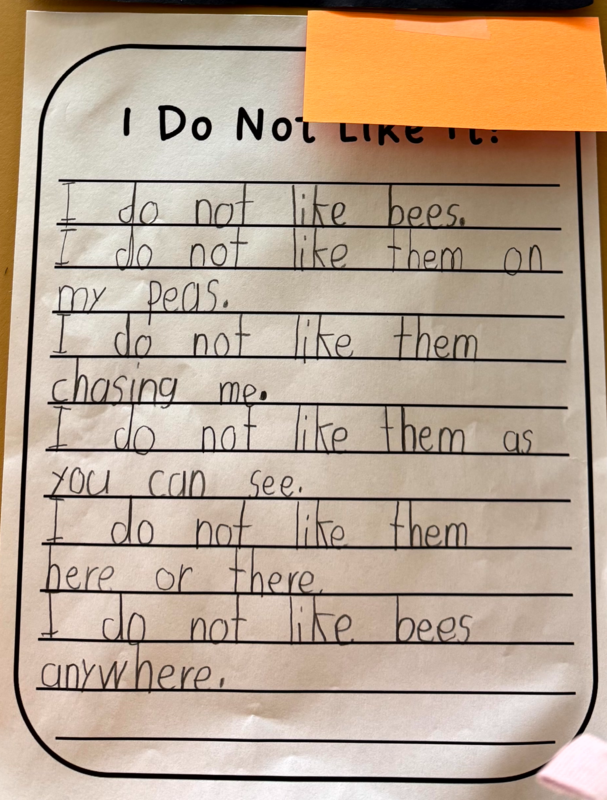 I Do Not Like It!
I do not like bees.
I do not like them on
my peas.
I do not like them
chasing me.
I do not like them as
you can see.
I do not like them
here or there.
I do not like bees
anywhere.